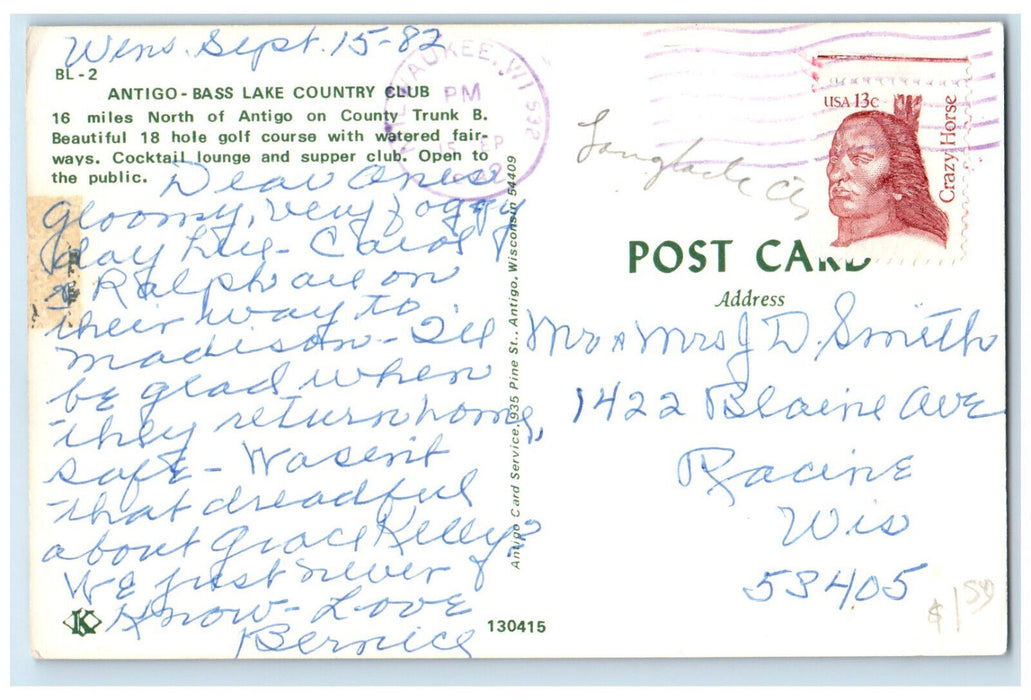 Wens. Sept. 15-82
BL-2
ANTIGO - BASS LAKE COUNTRY CLUB
16 miles North of Antigo on County Trunk B.
Beautiful 18 hole golf course with watered fair-
ways. Cocktail lounge and supper club. Open to
the public.
Dear Ones
Gloomy, very foggy
day here - Carol &
Ralph are on
their way to
Madison - I'll
be glad when
they return home,
safe - Wasent
that dreadful
about Grace Kelly?
We just never
know - Love
Bernice
K
130415
Antigo Card Service, 935 Pine St., Antigo, Wisconsin 54409
MILWAUKEE, WI 532
PM
15 SEP
USA 13c
Crazy Horse
Langlade Cty
POST CARD
Address
Mr & Mrs J D. Smith
1422 Blaine Ave
Racine
Wis
53405
$1.50